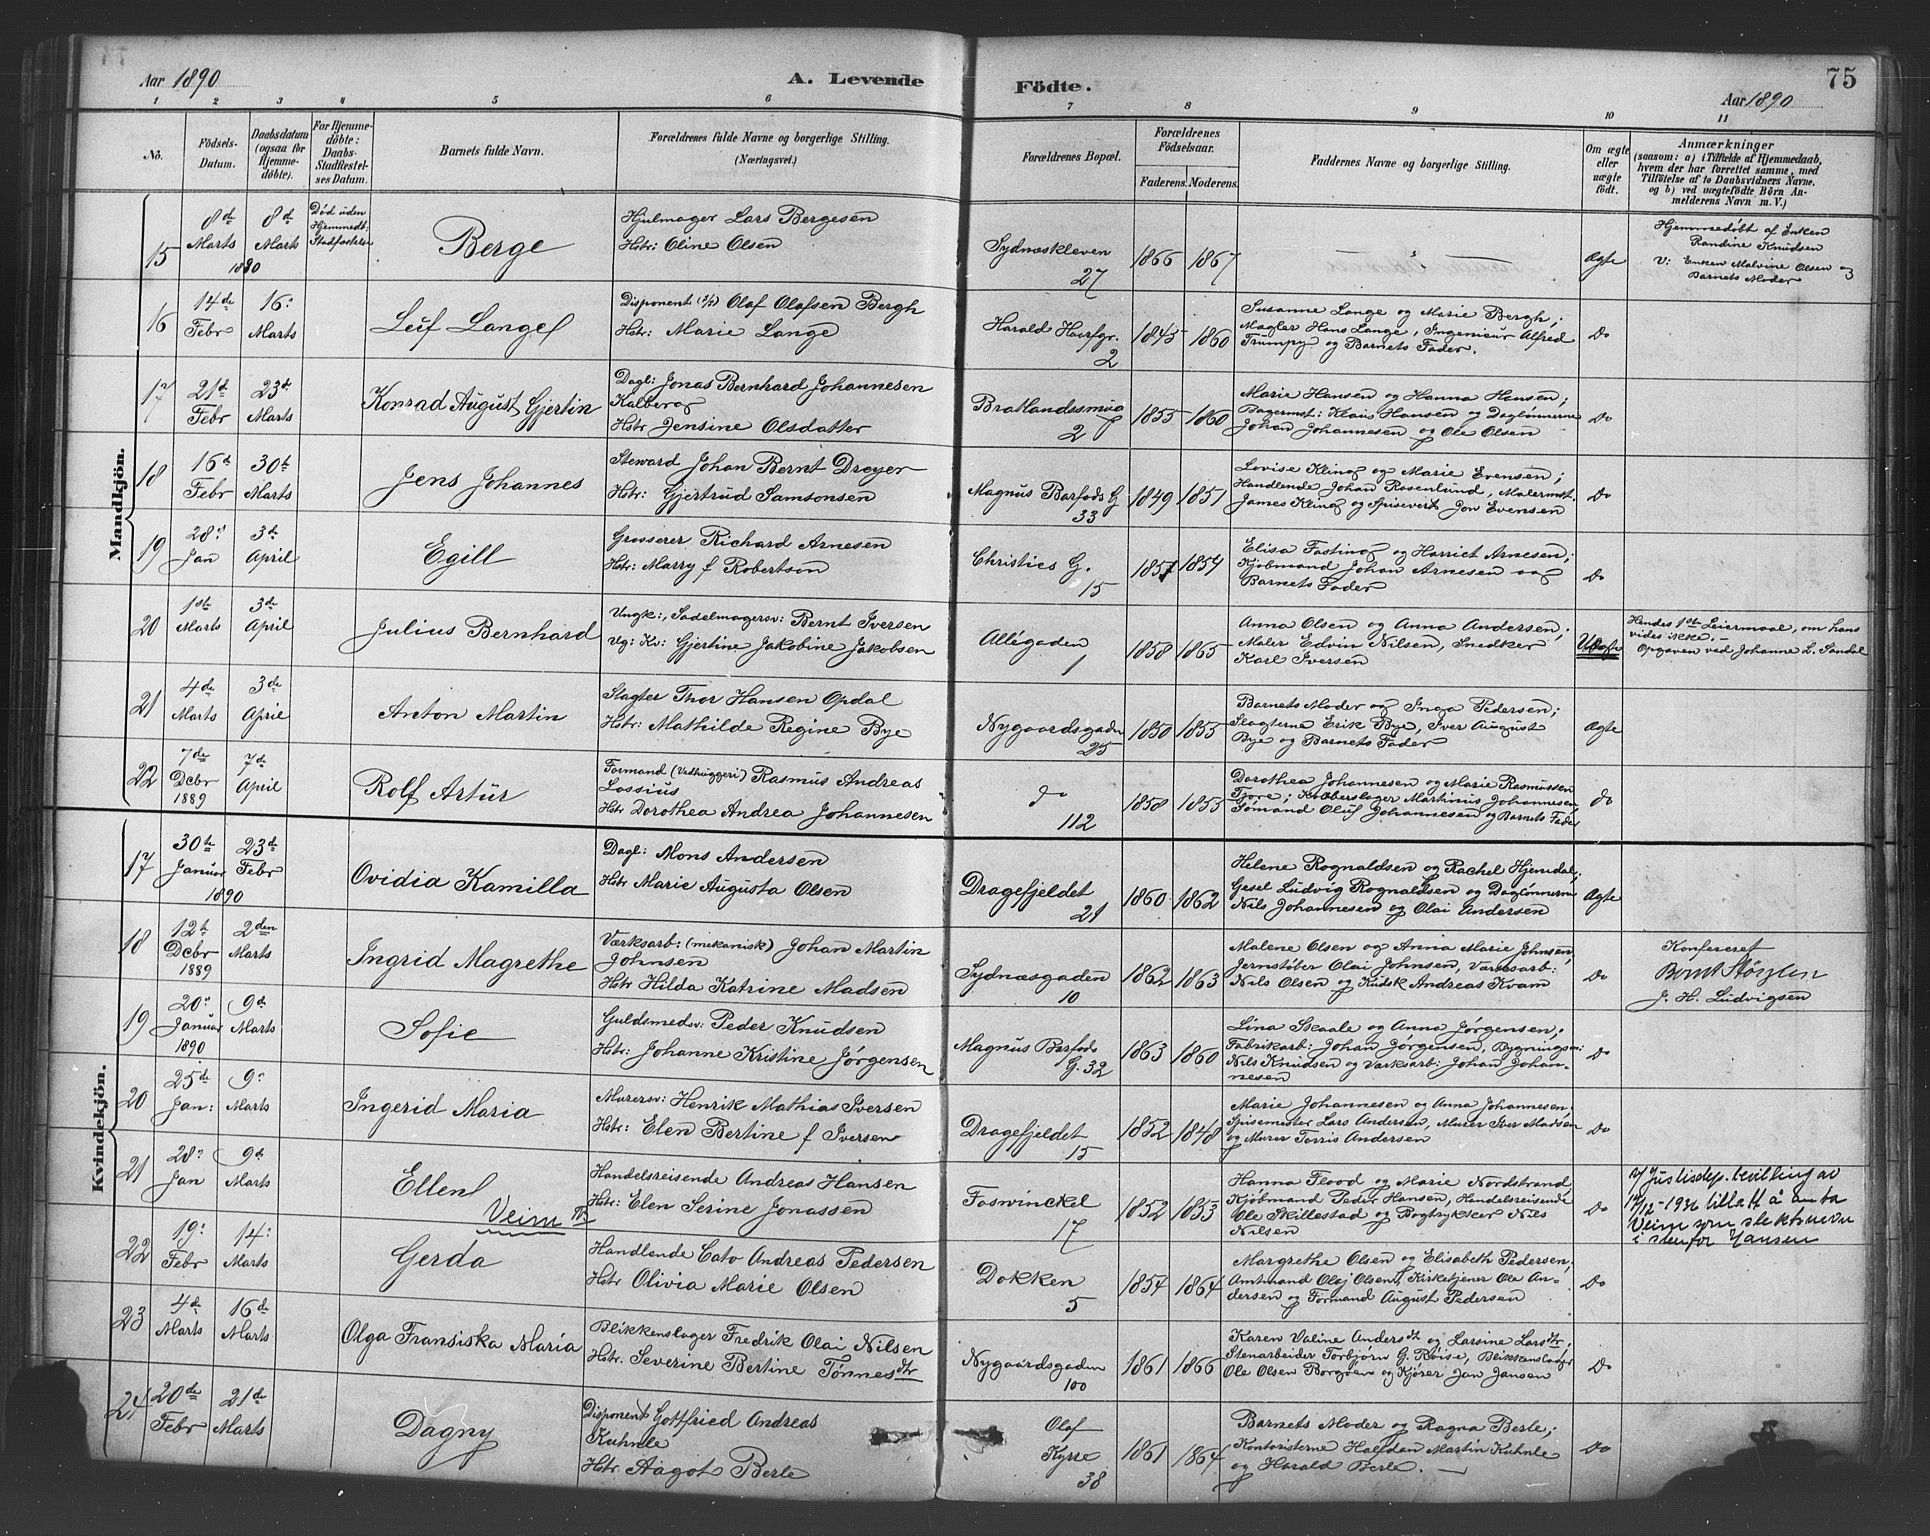 Aar 1890
A. Levende
Födte.
75
Aar 1890
1 2 3 4 5 6 7 8 9 10 11
No.
Födsels-
Datum.
Daabsdatum
(ogsaa for
Hjemme-
döbte).
For Hjemme-
döbte:
Daabs-
Stadfæstel-
ses Datum.
Barnets fulde Navn.
Forældrenes fulde Navne og borgerlige Stilling.
(Næringsvei.)
Forældrenes Bopæl.
Forældrenes
Födselsaar.
Faderens. Moderens.
Faddernes Navne og borgerlige Stilling.
Om ægte
eller
uægte
födt.
Anmærkninger
(saasom: a) i Tilfælde af Hjemmedaab,
hvem der har forrettet samme, med
Tilföielse af to Daabsvidners Navne.
og b) ved uægtefödte Börn An-
melderens Navn m. V.)
Mandkjön.
15
8de
Marts
1890
8de
Marts
Död uden
Hjemmedb:
Stadfæstelse
Berge
Hjulmager Lars Bergesen
Hstr: Oline Olsen
Sydneskleven
27
1866 1867
Ægte
Hjemmedöbt af Enken
Randine Knudsen
V: Enken Malvine Olsen og
Barnets Moder
16
14de
Febr
16:
Marts
Leif Lange
Disponent Olaf Olafsen Bergh
Hstr: Marie Lange
Harald Haarfgr.
2
1845 1860
Susanne Lange og Marie Bergh;
Mægler Hans Lange, Ingenieur Alfred
Trumpy og Barnets Fader.
Do
17
21de
Febr
23de
Marts
Konrad August Gjertin
Dagl: Jonas Bernhard Johannesen
Kalberg
Hstr Jensine Olsdatter
Bratlandssmug
2
1855 1860
Marie Hansen og Hanna Hansen;
Bagermst: Klaus Hansen og Daglönnerne
Johan Johannesen og Ole Olsen
Do
18
16d
Febr
30te
Marts
Jens Johannes
Steward Johan Bernt Dreyer
Hstr: Gjertrud Samsonsen
Magnus Barfods G
33
1849 1851
Lovise Kling og Marie Evensen;
Handlende Johan Rosenlund, Malermst.
James Kling og Spisevert Jon Evensen
Do
19
28:
Jan
3de
April
Egill
Grosserer Richard Arnesen
Hstr: Marry f Robertson
Christies G.
15
1857 1854
Elisa Fasting og Harriet Arnesen;
Kjöbmand Johan Arnesen og
Barnets Fader
Do
20
1ste
Marts
3de
April
Julius Bernhard
Ungk:, Sadelmagersv: Bernt Iversen
Ug: Kv: Gjertine Jakobine Jakobsen
Allégaden
1
1858 1865
Anna Olsen og Anna Andersen;
Maler Edvin Nilsen, Snedker
Karl Iversen
Uægte
Hendes 1ste Leiermaal, om hans
vides ikke.-
Opgaven ved Johanne L. Sandal
21
4de
Marts
3de
April
Anton Martin
Slagter Thor Hansen Opdal
Hstr: Mathilde Regine Bye
Nygaardsgaden
25
1850 1855
Barnets Moder og Inga Pedersen;
Slagterne Erik Bye, Iver August
Bye og Barnets Fader
Ægte
22
7de
Dcbr
1889
7de
April
Rolf Artur
Formand (Vedhuggeri) Rasmus Andreas
Lossius
Hstr Dorothea Andrea Johannesen
do
112
1858 1855
Dorothea Johannesen og Marie Rasmussen
Fjore; Kobberslager Martinus Johannesen,
Sömand Oluf Johannesen og Barnets Fader
do
Kvindekjön.
17
30te
Januar
1890
23de
Febr
Ovidia Kamilla
Dagl: Mons Andersen
Hstr Marie Augusta Olsen
Dragefjeldet
21
1860 1862
Helene Rognaldsen og Rachel Hjemdal;
Gesel Ludvig Rognaldsen og Daglönnerne
Nils Johannesen og Olai Andersen
Ægte
18
12te
Dcbr
1889
2den
Marts
Ingrid Magrethe
Værksarb: (mekanisk) Johan Martin
Johnsen
Hstr Hilda Katrine Madsen
Sydnæsgaden
10
1862 1863
Malene Olsen og Anna Marie Johnsen,
Jernstöber Olai Johnsen, Værksarb:
Nils Olsen og Kudsk Andreas Kvam
Do
Konfereret
Bernt Störzlen
J. H. Ludvigsen
19
20:
Januar
1890
9de
Marts
Sofie
Guldsmedsv: Peder Knudsen
Hstr: Johanne Kristine Jörgensen
Magnus Barfods
G. 32
1863 1860
Lina Skaale og Anna Jörgensen,
Fabrikarb: Johan Jörgensen, Bygningsm:
Nils Knudsen og Værksarb: Johan Johan-
nesen
Do
20
25de
Jan:
9:
Marts
Ingerid Maria
Murersv: Henrik Mathias Iversen
Hstr: Elen Bertine f Iversen
Dragefjeldet
15
1852 1848
Marie Johannesen og Anna Johannesen,
Spisemester Lars Andersen, Murer Iver Madsen
og Murer Torris Andersen
Do
21
28:
Jan
9de
Marts
Ellen
Veim
Handelsreisende Andreas Hansen
Hstr: Elen Serine Jonassen
Foswinckel
17
1852 1853
Hanna Flood og Marie Nordstrand
Kjöbmand Peder Hansen, Handelsreisende
Ole Skillestad og Bogtrykker Nils
Nilsen
Do
v/ Justisdep. bevilling av
12-1936 tillatt å anta
Veim som slektsnavn
i stenfor Hansen
22
19:
Febr
14:
Marts
Gerda
Handlende Cato Andreas Pedersen
Hstr Olivia Marie Olsen
Dokken
5
1854 1864
Margrethe Olsen og Elisabeth Pedersen,
Amtmand Olaj Olsen, Kirketjener Ole An-
dersen og Formand August Pedersen
Do
23
4de
Marts
16de
Marts
Olga Fransiska Maria
Blikkenslager Fredrik Olai Nilsen
Hstr. Severine Bertine Tönnesdtr
Nygaardsgaden
100
1861 1866
Karen Valine Andersdt og Larsine Larsdtr;
Stenarbeider Torbjörn G. Röise, Blikkenslager
Ole Olsen Borgöen og Kjörer Jan Jansen
Do
24
20de
Febr
21de
Marts
Dagny
Disponent Gottfried Andreas
Kuhnle
Hstr Aagot Berle
Olaf
Kyrre
38
1861 1864
Barnets Moder og Ragna Berle;
Kontoristerne Halfdan Martin Kuhnle
og Harald Berle. —
Do